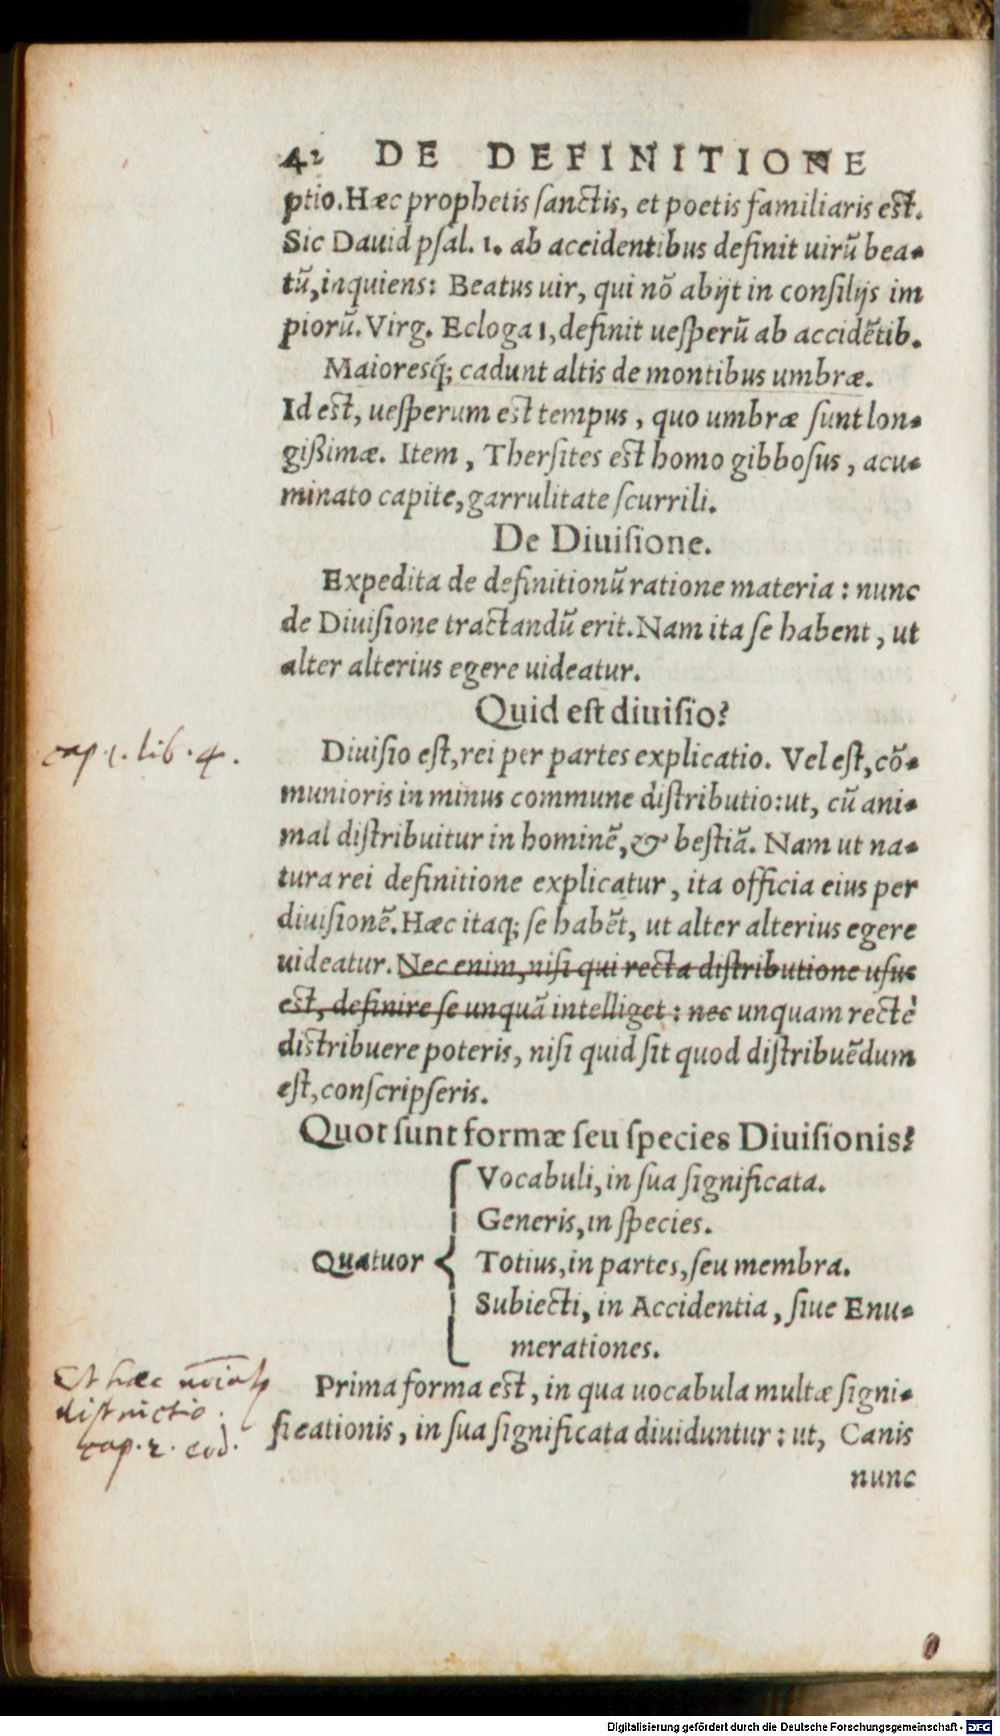 42 DE DEFINITIONE
ptio. Hæc prophetis ſanctis, et poetis familiaris eſt.
Sic Dauid pſal. 1. ab accidentibus definit uirū bea-
tū, inquiens: Beatus uir, qui nō abijt in conſilijs im
piorū. Virg. Ecloga 1, definit ueſperū ab accidētib.
Maioresq́; cadunt altis de montibus umbræ.
Id eſt, ueſperum eſt tempus, quo umbræ ſunt lon-
gißimæ. Item, Therſites eſt homo gibboſus, acu-
minato capite, garrulitate ſcurrili.
De Diuiſione.
Expedita de definitionū ratione materia: nunc
de Diuiſione tractandū erit. Nam ita ſe habent, ut
alter alterius egere uideatur.
Quid eſt diuiſio?
cap. 1. lib. 4.
Diuiſio eſt, rei per partes explicatio. Vel eſt, cō-
munioris in minus commune diſtributio: ut, cū ani-
mal diſtribuitur in hominē, & beſtiā. Nam ut na-
tura rei definitione explicatur, ita officia eius per
diuiſionē. Hæc itaq; ſe habēt, ut alter alterius egere
uideatur. Nec enim, niſi qui recta diſtributione uſus
eſt, definire ſe unquā intelliget: nec unquam rectè
diſtribuere poteris, niſi quid ſit quod diſtribuēdum
eſt, conſcripſeris.
Quot ſunt formæ ſeu ſpecies Diuiſionis?
Vocabuli, in ſua ſignificata.
Generis, in ſpecies.
Quatuor
Totius, in partes, ſeu membra.
Subiecti, in Accidentia, ſiue Enu-
merationes.
Et hæc
diſtinctio.
cap. 2. eod.
Prima forma eſt, in qua uocabula multæ ſigni-
ficationis, in ſua ſignificata diuiduntur: ut, Canis
nunc
Digitalisierung gefördert durch die Deutsche Forschungsgemeinschaft - DFG